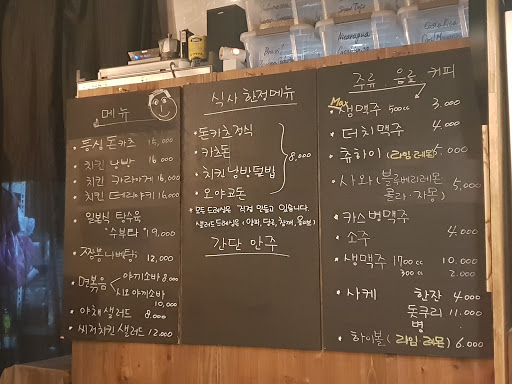 Nicaragua
메뉴
등심돈카츠 15,000
치킨 난방 16,000
치킨 카라아게 16,000
치킨 데리야키 16,000
일본식 탕수육
"수부타" 19,000
짬뽕나베탕 12,000
면볶음 야끼소바 8.000
시오야끼소바
10,000
야채샐러드 8.000
씨저치킨샐러드 12.000
식사 한정메뉴
돈카츠정식
카츠돈
치킨난방덮밥
오야코돈
8,000
* 모든 드레싱은 직접 만들고 있습니다
샐러드드레싱은 (양파, 당근, 참깨, 올리브)
간단 안주
주류 음료 커피
Max
생맥주 500cc 3.000
더치맥주 4.000
츄하이 (라임 레몬) 5,000
사와 (블루베리레몬 5,000
유자·자몽)
카스병맥주
소주 4.000
생맥주 1700cc 10.000
300cc 2.000
사케 한잔 4000
돗쿠리 11.000
병
하이볼 (라임 레몬) 6.000